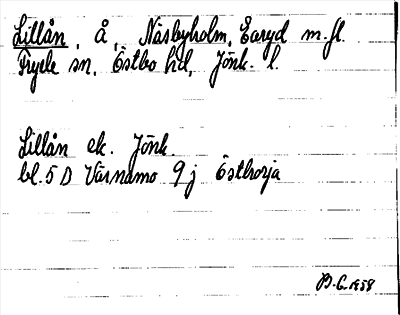 Lillån, å, Näsbyholm, Earyd m.fl.
Fryele sn, Östbo hd, Jönk. l.
Lillån ek. Jönk.
bl. 5 D Värnamo 9 j Östhorja
B.C. 1958